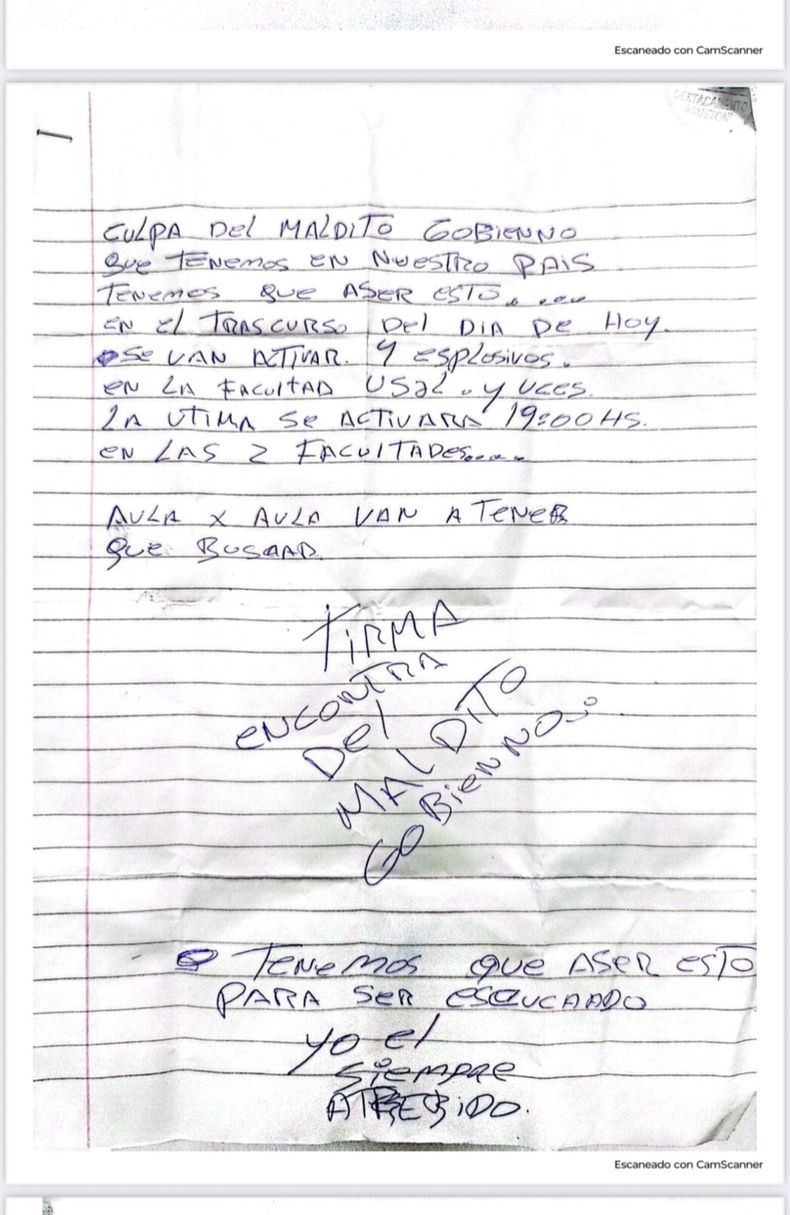 Escaneado con CamScanner
DESTACAMENTO
CULPA Del MALDITO GOBIENNO
QUE TENEMOS EN NUESTRO PAIS
TENEMOS QUE ASER ESTO. ....
EN El TRASCURSO Del DIA DE HOY.
SE VAN ACTIVAR. 4 esplosivos.
EN LA FACUlTAD USal. y UCES.
LA UTIMA Se ACTIVARA 19:00HS.
EN LAS 2 FACUlTADES.....
AULA X AULA VAN A TENER
QUE BUSCAR.
FIRMA
ENCONTRA
Del
MALDITO
GOBienNO...
TENEMOS QUE ASER ESTO
PARA SER ESCUCHADO
yo el
siempre
ATREBIDO.
Escaneado con CamScanner